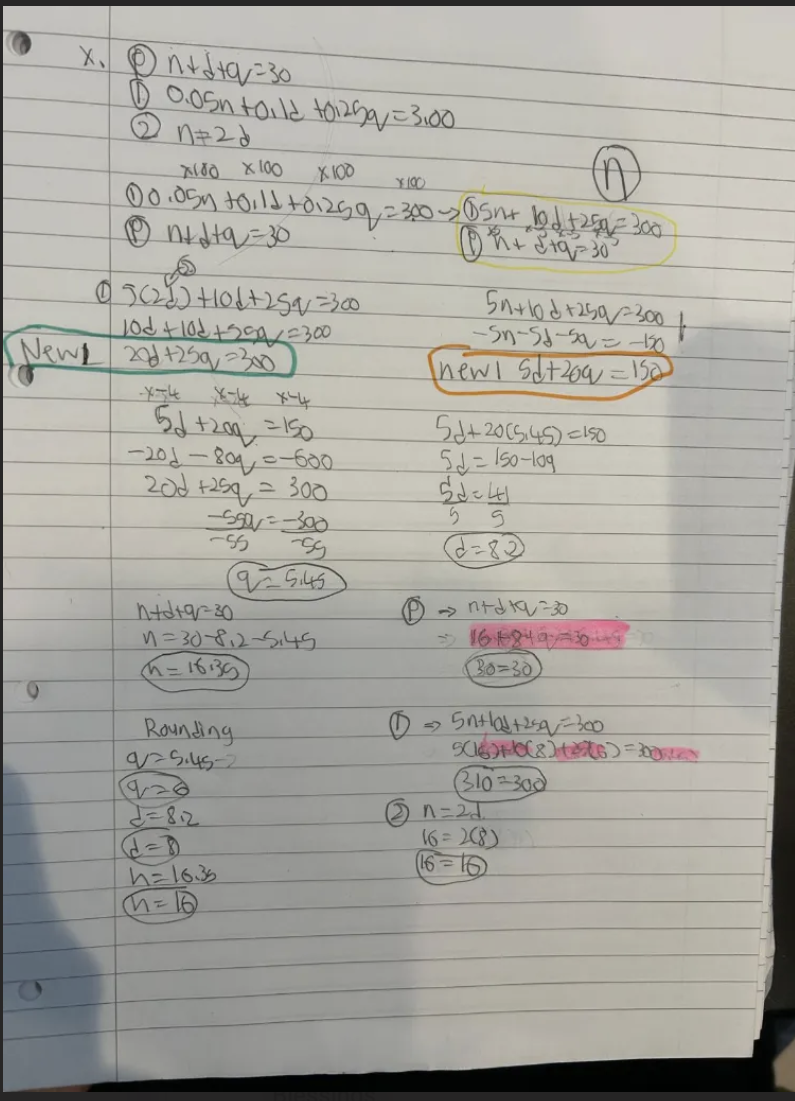 X. Ⓟ n+d+q=30
① 0.05n+0.1d+0.25q=3.00
② n=2d
x100 x100 x100 x100
ⓝ
① 0.05n+0.1d+0.25q=300 → ① 5n+10d+25q=300
Ⓟ n+d+q=30
Ⓟ n+d+q=30
②
① 5(2d)+10d+25q=300
10d+10d+25q=300
New 1 20d+25q=300
5n+10d+25q=300
-5n-5d-5q=-150
new 1 5d+20q=150
x-4 x-4 x-4
5d+20q=150
-20d-80q=-600
20d+25q=300
-55q=-300
-55 -55
q=5.45
5d+20(5.45)=150
5d=150-109
5d=41
5 5
d=8.2
n+d+q=30
n=30-8.2-5.45
n=16.35
Ⓟ → n+d+q=30
30=30
Rounding
q=5.45
q=6
d=8.2
d=8
n=16.35
n=16
① → 5n+10d+25q=300
5(16)+10(8)+25(6)=300
310=300
② n=2d
16=2(8)
16=16